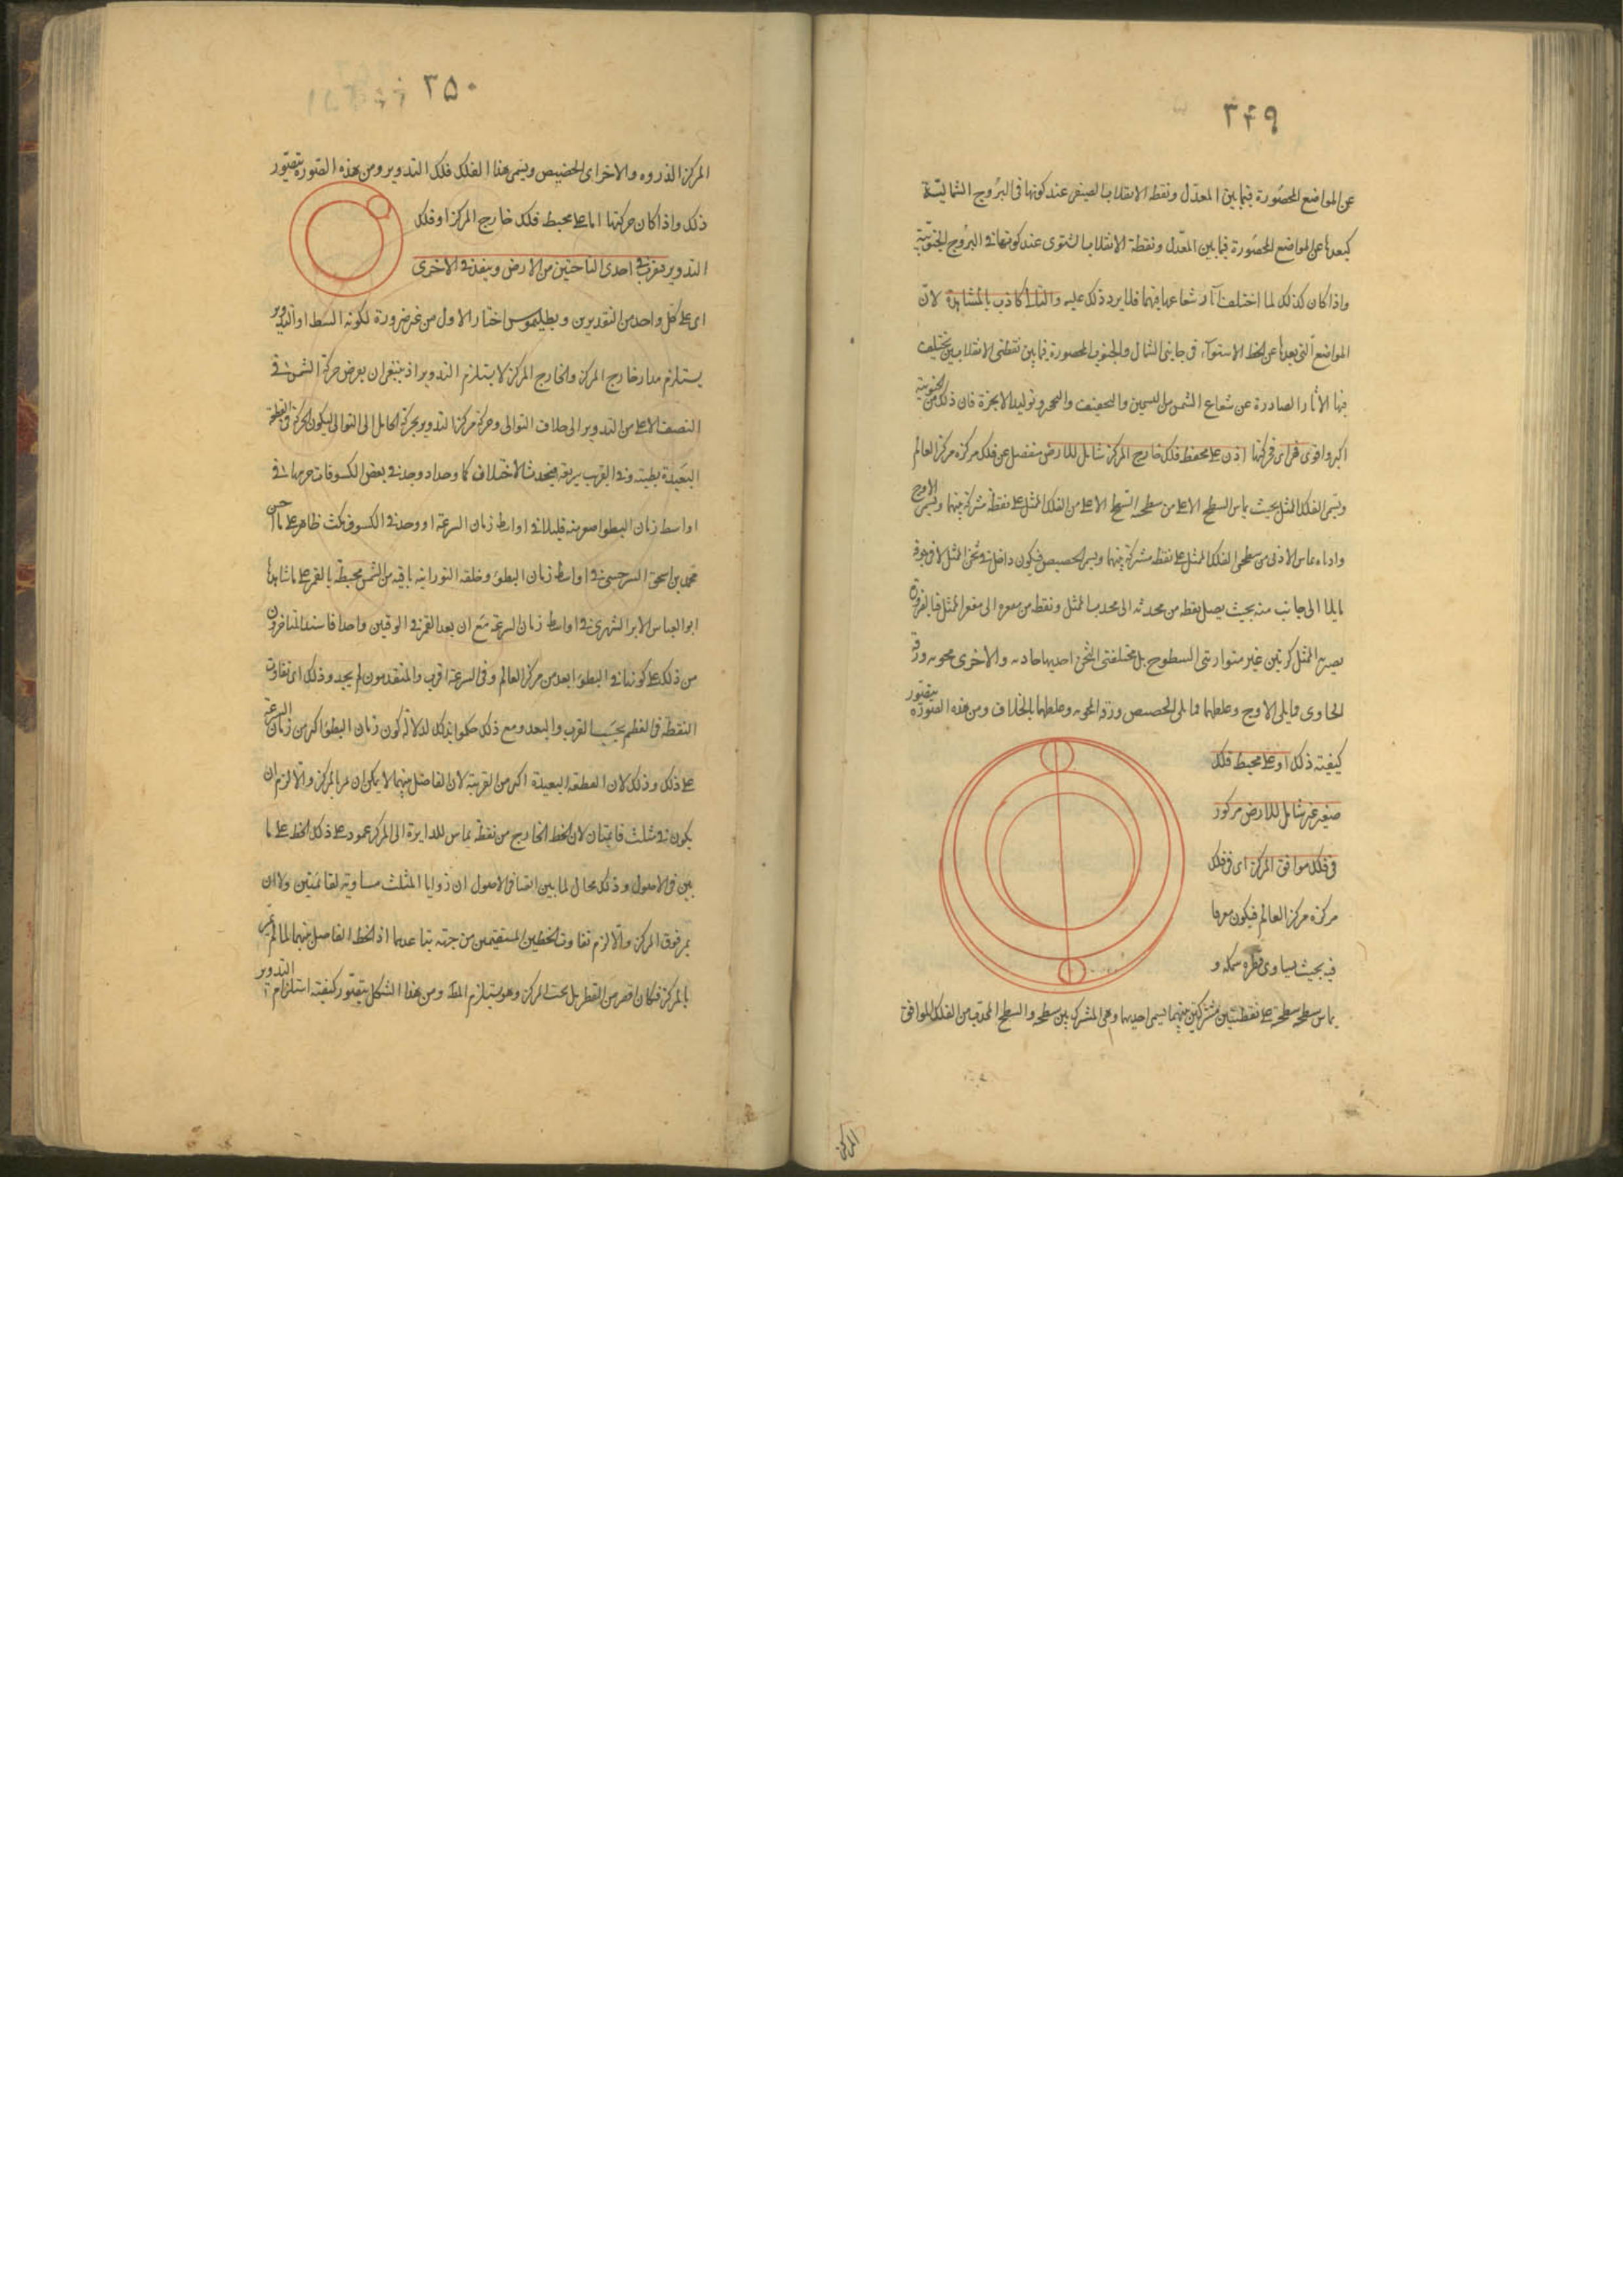 ٣۴٩
عن المواضع المحصورة فيما بين المعدل ونقطة الانقلاب الصيفى عند كونها فى البروج الشمالية
كبعدها عن المواضع المحصورة فيما بين المعدل ونقطة الانقلاب الشتوى عند كونها فى البروج الجنوبية
واذا كان كذلك لما اختلفت آثار شعاعها فيهما فلا يرد ذلك عليه والتالى كاذب بالمشاهدة لان
المواضع التى بعدها عن خط الاستوآء فى جانبى الشمال والجنوب المحصورة فيما بين نقطتى الانقلابين يختلف
فيها الاثار الصادرة عن شعاع الشمس من التسخين والتجفيف والتبخر وتوليد الابخرة فان ذلك من الجنوبية
اكبر واقوى فحركتها اذن على محيط فلك خارج المركز شامل للارض منفصل عن فلك مركزه مركز العالم
ويسمى الفلك الممثل بحيث يماس السطح الاعلى من سطحيه السطح الاعلى من الفلك الممثل على نقطة مشتركة بينهما ويسمى الاوج
الادنى من سطحى الفلك الممثل على نقطة مشتركة بينهما ويسمى الحضيض فيكون داخل فى ثخن الممثل لا فى جوفه
مايلا الى جانب منه بحيث يصل نقطة من محدبه الى محدب الممثل ونقطة من مقعره الى مقعر الممثل فبالضرورة
يصير الممثل كرتين غير متوازيتى السطوح بل مختلفتى الثخن احديهما حاوية والاخرى محوية ورقة
الحاوى مما يلى الاوج وغلظها مما يلى الحضيض ورقة المحوية وغلظها بالخلاف ومن هذه الصورة يتصور
كيفية ذلك او على محيط فلك
صغير غير شامل للارض مركوز
فى فلك موافق المركز اى فى فلك
مركزه مركز العالم فيكون مغرقا
فيه بحيث يساوى قطره سمكه و
يماس سطحه سطحيه على نقطتين مشتركتين بينهما يسمى احديهما وهى المشتركة بين سطحه والسطح المحدب من الفلك الموافق
المركز
٢۵٠
المركز الذروه والاخرى الحضيض ويسمى هذا الفلك فلك التدوير ومن هذه الصورة يتصور
ذلك واذا كان حركتها اما على محيط فلك خارج المركز او فلك
التدوير فيقرب فى احدى الناحيتين من الارض ويبعد فى الاخرى
اى على كل واحد من التقديرين وبطليموس اختار الاول من غير ضرورة لكونه ابسط او التدوير
يستلزم مدار خارج المركز والخارج المركز لا يستلزم التدوير اذ ينبغى ان يفرض حركة الشمس فى
النصف الاعلى من التدوير الى خلاف التوالى وحركة مركز التدوير بحركة الحامل الى التوالى ليكون الحركة فى القطعة
البعيدة بطيئة وفى القريب سريعة فيحدث الاختلاف كما وجد وجد فى بعض الكسوفات جرمها فى
اواسط زمان البطؤ اصغر منه قليلا فى اواسط زمان السرعة او وجد فى الكسوف مكث ظاهر على ما
محمد بن اسحق السرخسى فى اواسط زمان البطؤ وحلقة النورانية باقيه من الشمس محيطة بالقمر على ما شاهدها
ابو العباس الايرانشهرى فى اواسط زمان السرعة مع ان بعد القمر فى الوقتين واحد فاستدل المتاخرون
من ذلك على كونها فى البطؤ ابعد من مركز العالم وفى السرعة اقرب والمتقدمون لم يجدوا ذلك اى تفاوت
النقطة فى العظم بحسب القرب والبعد ومع ذلك حكموا بذلك لدلالة كون زمان البطؤ اكثر من زمان السرعة
على ذلك وذلك لان القطعة البعيدة اكبر من القريبة لان الفاصل بينهما لا يمكن ان يمر بالمركز والا لزم ان
يكون فى مثلث قائمتان لان الخط الخارج من نقطة تماس للدايرة الى المركز عمود على ذلك الخط على ما
بين فى الاصول وذلك محال لما بين ايضا فى الاصول ان زوايا المثلث مساوية لقائمتين ولا ان
يمر فوق المركز والا لزم تقاوت الخطين المستقيمين من جهة يتباعدهما اذ الخط الفاصل بينهما لما لم يمر
بالمركز فكان اقصر من القطر بل تحت المركز وهو يستلزم المط ومن هذا الشكل يتصور كيفية استلزام التدوير